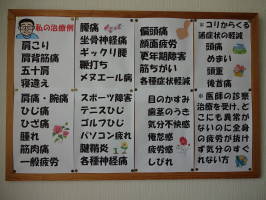 私の治療例
肩こり
肩背筋痛
五十肩
寝違え
肩痛・腕痛
ひじ痛
ひざ痛
腫れ
筋肉痛
一般疲労
腰痛
坐骨神経痛
ギックリ腰
鞭打ち
メヌエール病
スポーツ障害
テニスひじ
ゴルフひじ
パソコン疲れ
腱鞘炎
各種神経痛
偏頭痛
顔面疲労
更年期障害
筋ちがい
各種症状軽減
目のかすみ
歯茎のうき
気分不快感
倦怠感
疲労感
しびれ
※コリからくる
諸症状の軽減
頭痛
めまい
頭重
後首痛
※医師の診察
治療を受け、ど
こにも異常が
ないのに全身
の疲労が抜け
ず気分のすぐ
れない方